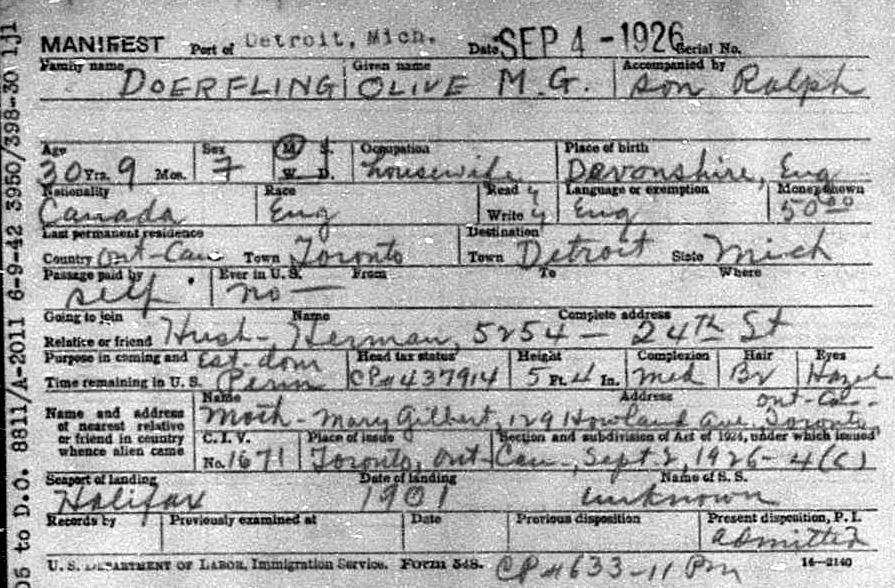 MANIFEST Port of Detroit, Mich. Date SEP 4 - 1926 Serial No.
Family name Given name Accompanied by
DOERFLING OLIVE M.G. son Ralph
Age Sex M. S. Occupation Place of birth
30 Yrs. 9 Mos. F W. D. housewife Devonshire, Eng
Nationality Race Read y Language or exemption Money shown
Canada Eng Write y Eng 50 00
Last permanent residence Destination
Country Ont-Can Town Toronto Town Detroit State Mich
Passage paid by Ever in U.S. From To Where
self no —
Going to join Name Complete address
Relative or friend Husb-, Herman, 5254 - 24th St
Purpose in coming and Est. dom Head tax status Height Complexion Hair Eyes
Time remaining in U. S. Perm CP#437914 5 Ft. 4 In. Med Br Hazel
Name Address Ont-Can-
Name and address of nearest relative or friend in country whence alien came Moth - Mary Gilbert, 129 Howland Ave, Toronto,
C. I. V. Place of issue Section and subdivision of Act of 1924, under which issued
No. 1671 Toronto, Ont-Can-, Sept 2, 1926 - 4(c)
Seaport of landing Date of landing Name of S. S.
Halifax 1901 unknown
Records by Previously examined at Date Previous disposition Present disposition, P. I.
admitted
U. S. DEPARTMENT OF LABOR, Immigration Service. FORM 548. CP#633-11 PM 16-2140
05 to D.O. 8811/A-2011 6-9-42 3950/398-30 1j1